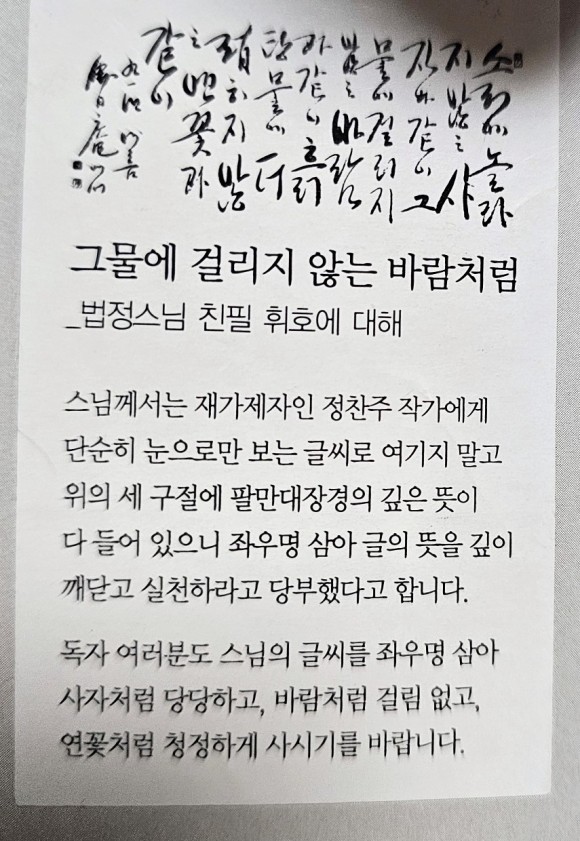 소리에 놀라
지 않는 사
자와 같이 그
물에 걸리지
않는 바람
과 같이 흙
탕물에 더
럽히지 않
는 연꽃과
같이
그물에 걸리지 않는 바람처럼
_법정스님 친필 휘호에 대해
스님께서는 재가제자인 정찬주 작가에게
단순히 눈으로만 보는 글씨로 여기지 말고
위의 세 구절에 팔만대장경의 깊은 뜻이
다 들어 있으니 좌우명 삼아 글의 뜻을 깊이
깨닫고 실천하라고 당부했다고 합니다.
독자 여러분도 스님의 글씨를 좌우명 삼아
사자처럼 당당하고, 바람처럼 걸림 없고,
연꽃처럼 청정하게 사시기를 바랍니다.